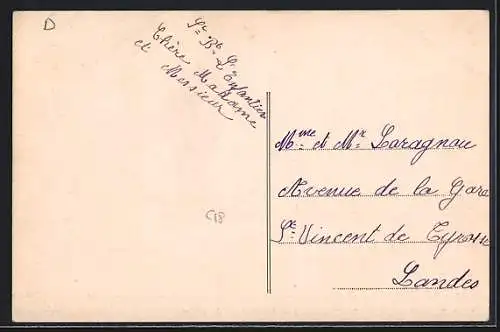 D
Chère Madame
et Monsieur
Mme et Mr Laragnou
Avenue de la Gare
St Vincent de Tyrosse
Landes
C18